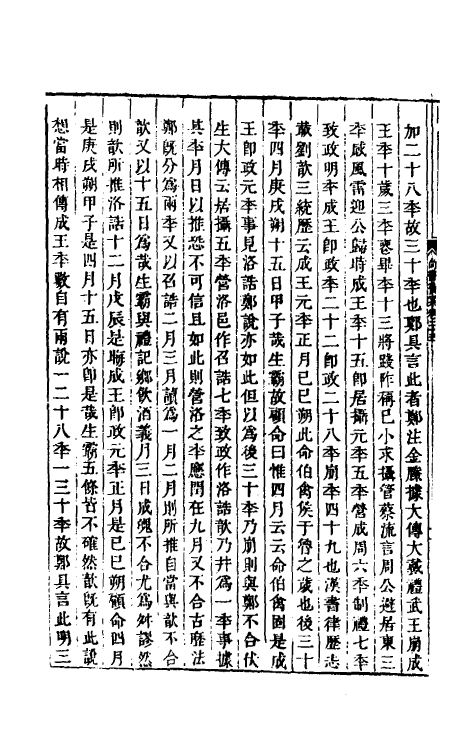 加二十八年故三十年也鄭具言此者鄭注金縢據大傳大戴禮武王崩成
王年十歲三年喪畢年十三將踐阼稱已小求攝管蔡流言周公避居東三
年感風雷迎公歸時成王年十五即居攝元年五年營成周六年制禮七年
致政明年成王卽政年二十二卽政二十八年崩年四十九也漢書律歷志
載劉歆三統歷云成王元年正月己巳朔此命伯禽俟于魯之歲也後三十
年四月庚戌朔十五日甲子哉生霸故顧命曰惟四月云云命伯禽固是成
王卽政元年事見洛誥鄭說亦如此但以爲後三十年乃崩則與鄭不合伏
生大傳云居攝五年營洛邑作召誥七年致政作洛誥歆乃幷爲一年事據
其年月日以推恐不可信且如此則營洛之年應閏在九月又不合古歷法
鄭旣分爲兩年又以召誥二月三月讀爲一月二月則所推自當與歆不合
歆又以十五日爲哉生霸與禮記鄉飲酒義月三日成魄不合尤爲舛謬然
則歆所推洛誥十二月戊辰是晦成王卽政元年正月是己巳朔顧命四月
是庚戌朔甲子是四月十五日亦卽是哉生霸五條皆不確然歆旣有此說
想當時相傳成王年數自有兩說一二十八年一三十年故鄭具言此明三